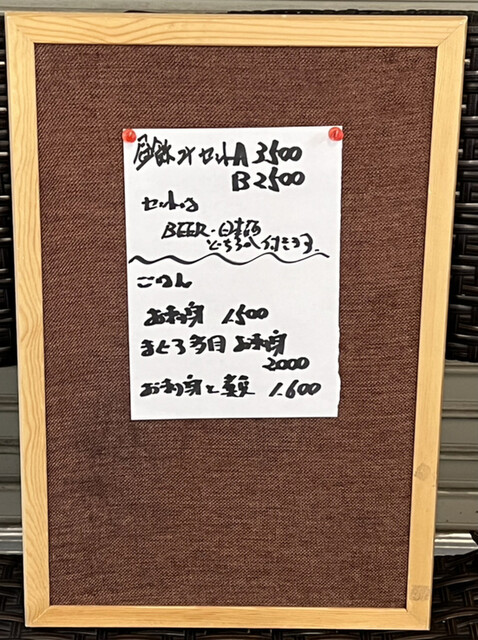 昼飲みセットA 3500
B 2500
セットは
BEER・日本酒
どちらか 付きます。
ごはん
お刺身 1.500
まぐろ多目 お刺身
2000
お刺身と 1.600